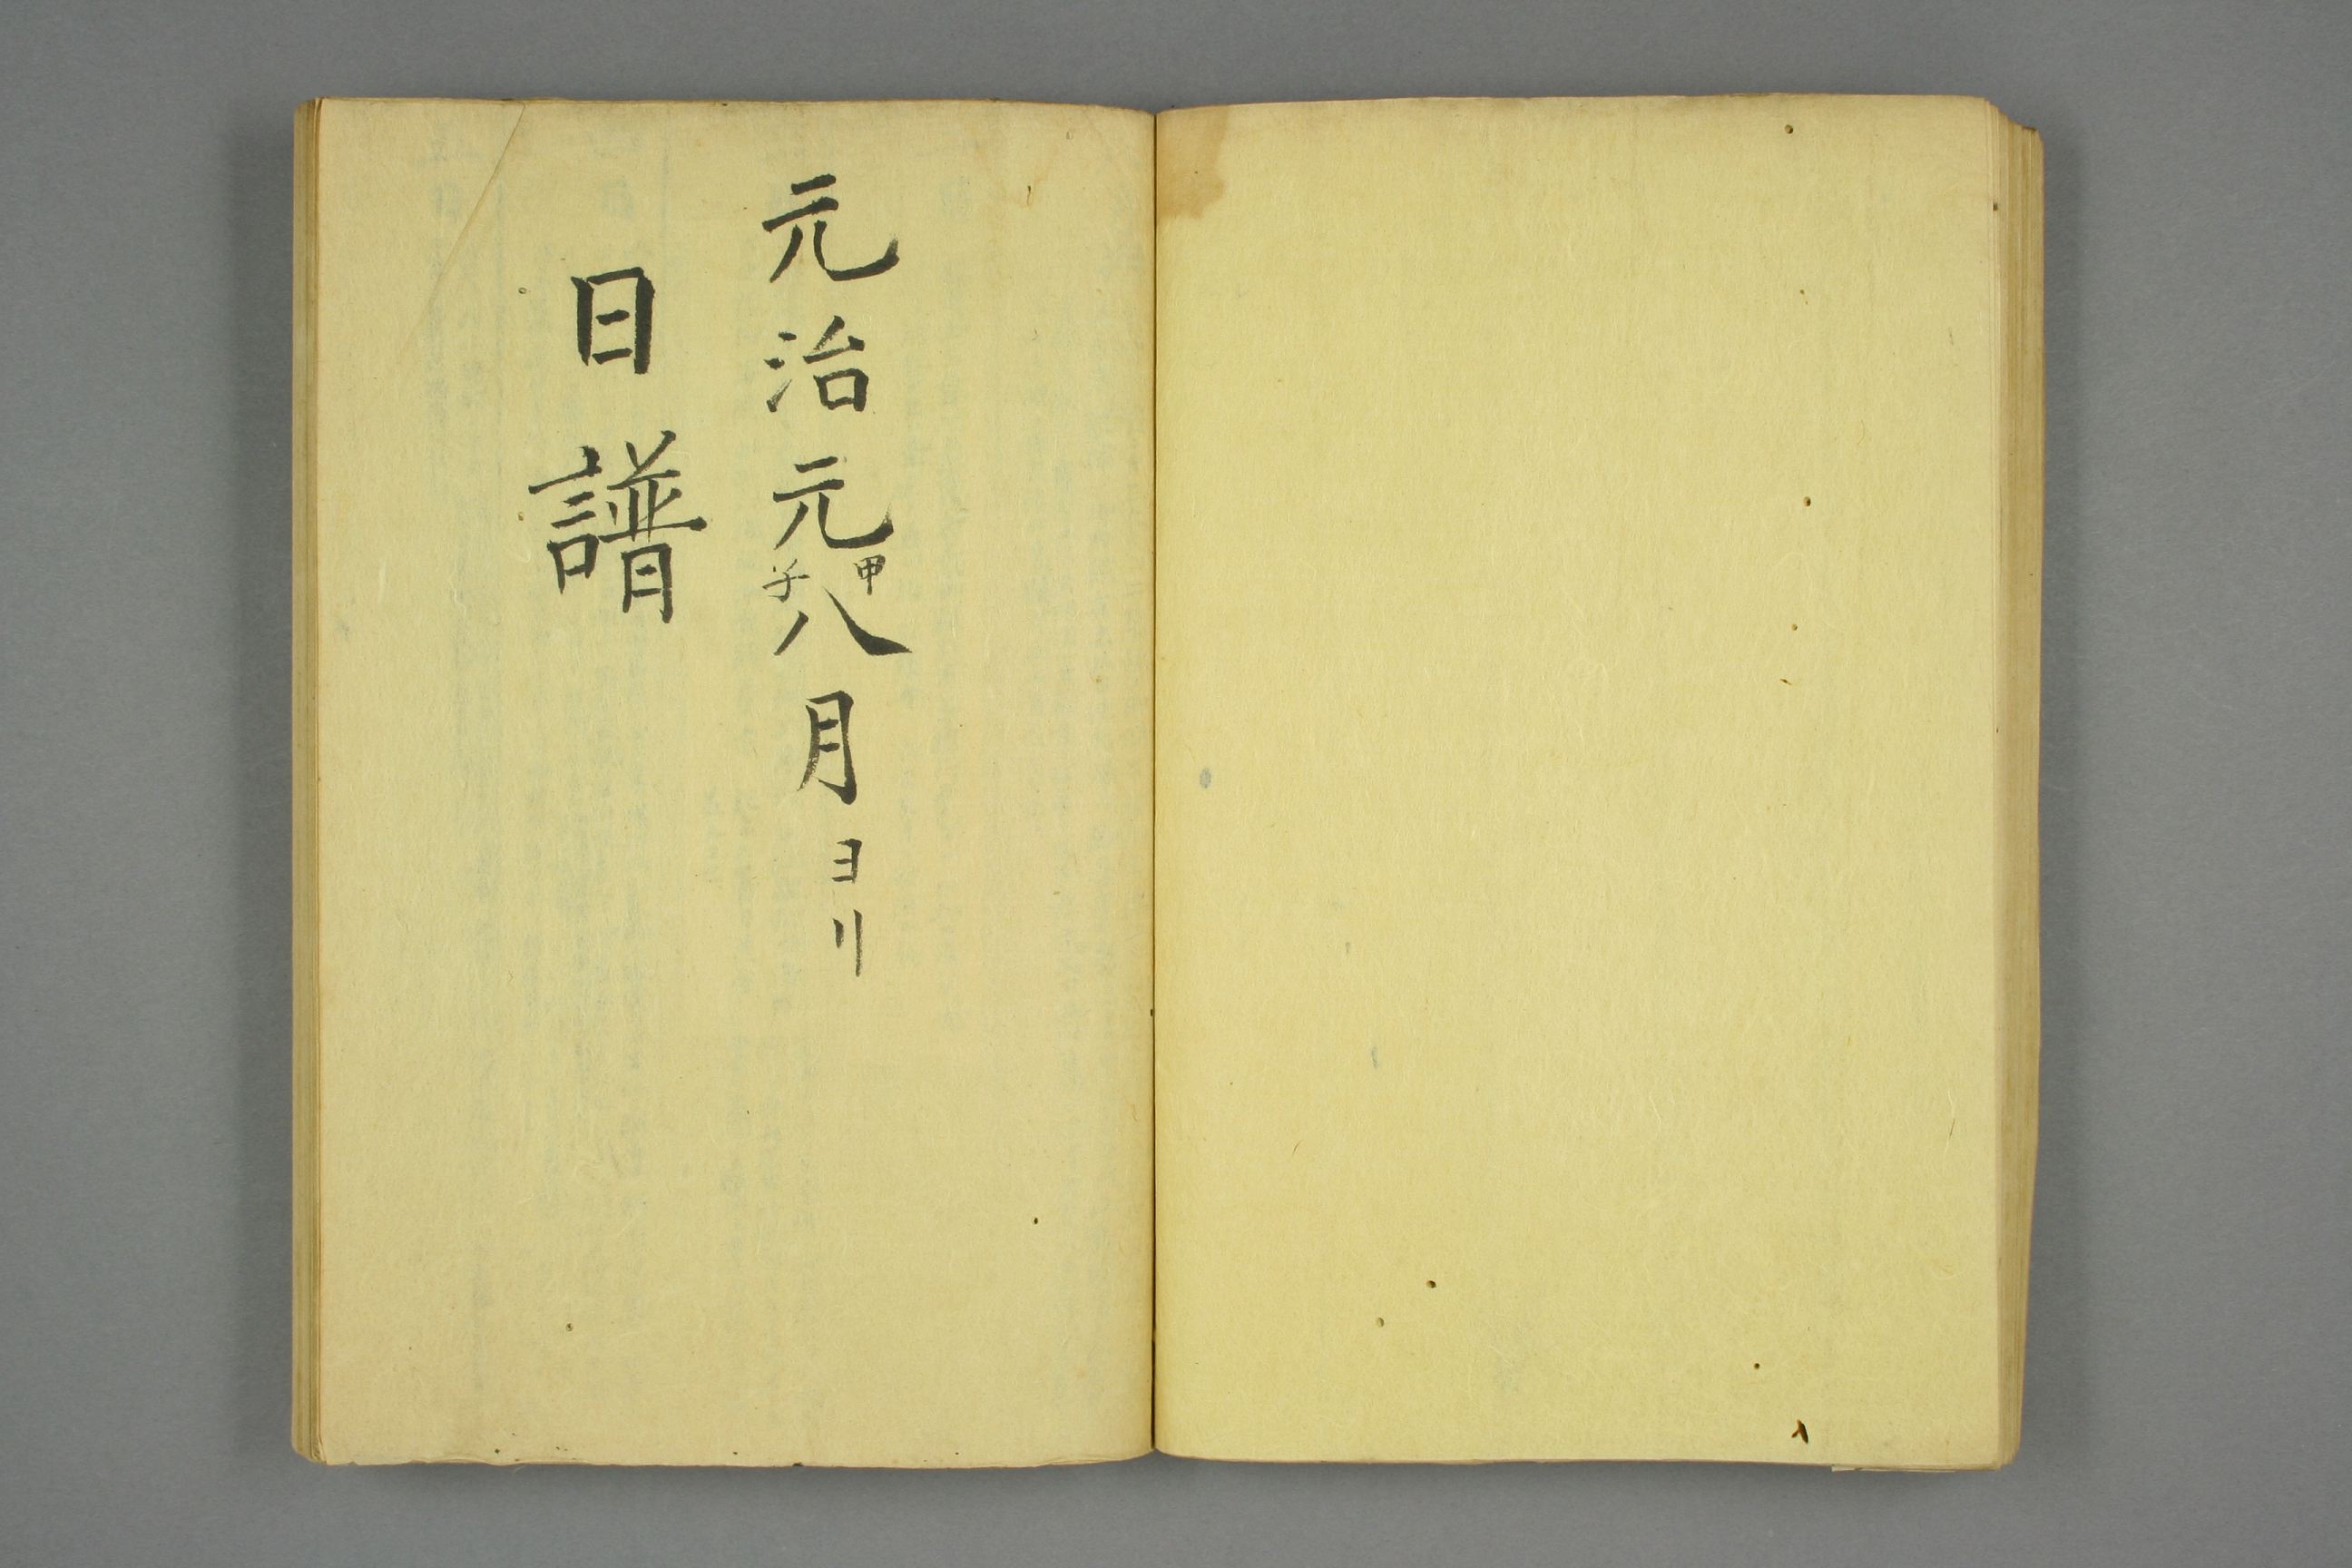 元治元甲子八月ヨリ
日譜